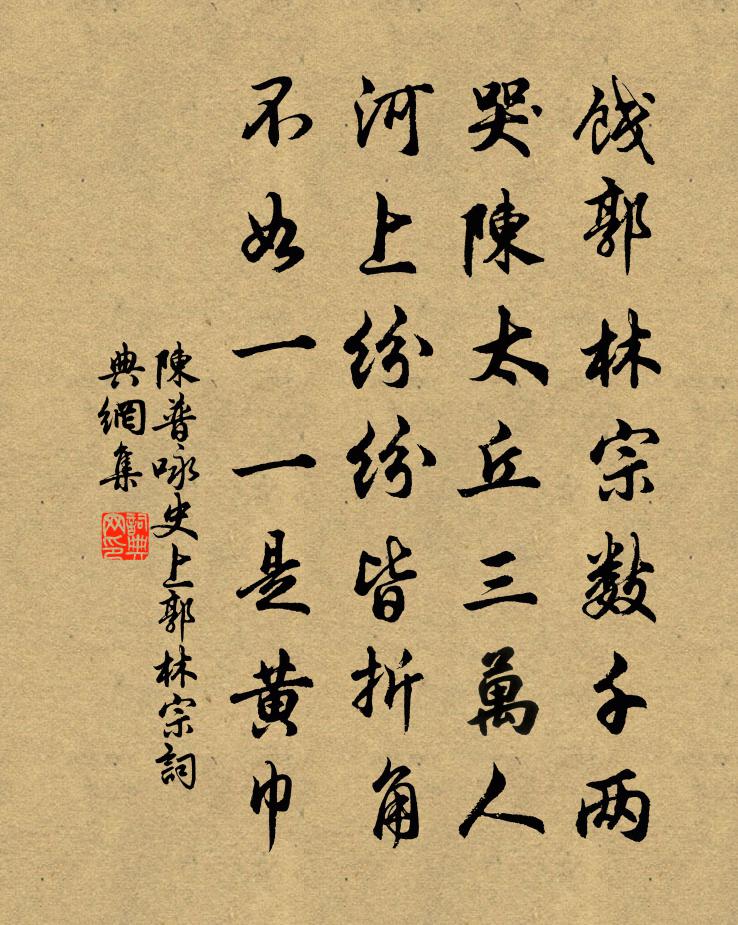 餞郭林宗數千两
哭陳太丘三萬人
河上紛紛皆折角
不如一一是黄巾
陳普咏史上郭林宗詞
典網集
詞典网印